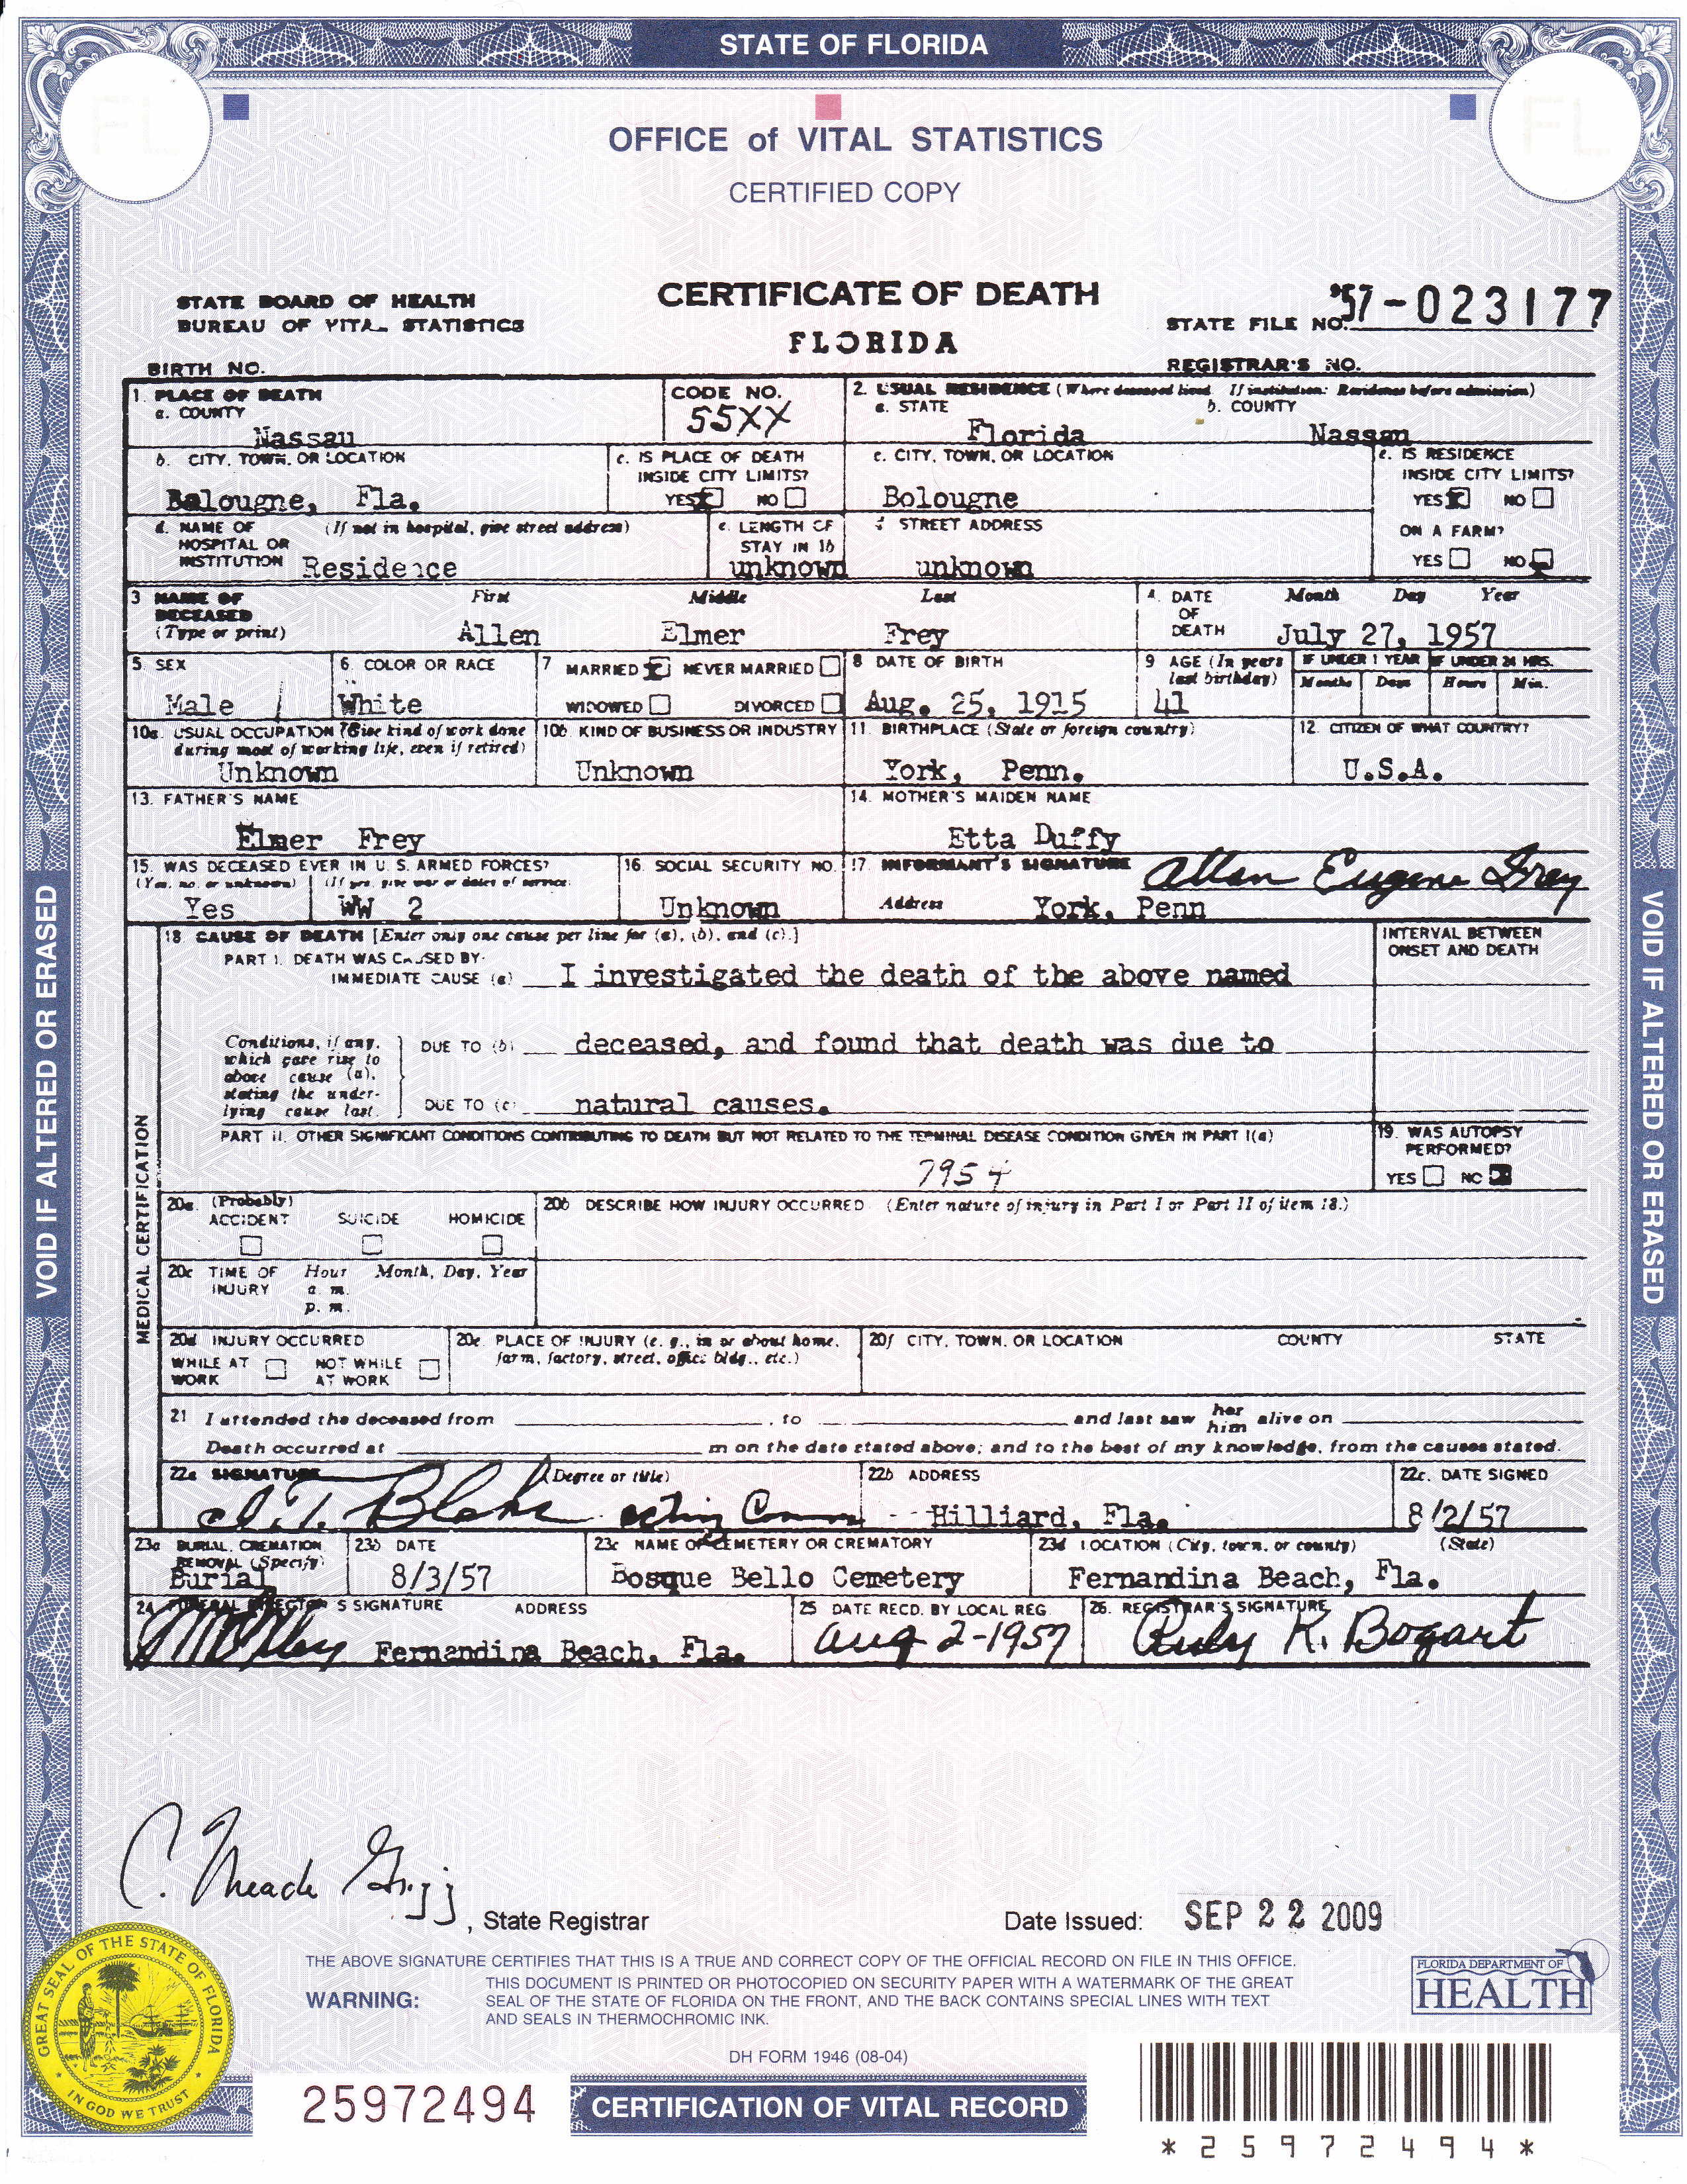 STATE OF FLORIDA
OFFICE of VITAL STATISTICS
CERTIFIED COPY
STATE BOARD OF HEALTH
BUREAU OF VITAL STATISTICS
CERTIFICATE OF DEATH
FLORIDA
STATE FILE NO. '57-023177
BIRTH NO.
REGISTRAR'S NO.
1. PLACE OF DEATH
a. COUNTY
Nassau
CODE NO.
55XX
2. USUAL RESIDENCE (Where deceased lived. If institution: Residence before admission)
a. STATE
Florida
b. COUNTY
Nassau
b. CITY, TOWN, OR LOCATION
Balougne, Fla.
c. IS PLACE OF DEATH
INSIDE CITY LIMITS?
YES X NO
c. CITY, TOWN, OR LOCATION
Bolougne
e. IS RESIDENCE
INSIDE CITY LIMITS?
YES X NO
d. NAME OF (If not in hospital, give street address)
HOSPITAL OR
INSTITUTION Residence
e. LENGTH OF
STAY IN 1b
unknown
STREET ADDRESS
unknown
ON A FARM?
YES NO
3 NAME OF
DECEASED
(Type or print)
First Middle Last
Allen Elmer Frey
4. DATE
OF
DEATH
Month Day Year
July 27, 1957
5. SEX
Male
6. COLOR OR RACE
White
7 MARRIED X NEVER MARRIED
WIDOWED DIVORCED
8 DATE OF BIRTH
Aug. 25, 1915
9 AGE (In years
last birthday)
41
IF UNDER 1 YEAR IF UNDER 24 HRS.
Months Days Hours Min.
10a. USUAL OCCUPATION (Give kind of work done
during most of working life, even if retired)
Unknown
10b. KIND OF BUSINESS OR INDUSTRY
Unknown
11. BIRTHPLACE (State or foreign country)
York, Penn.
12. CITIZEN OF WHAT COUNTRY?
U.S.A.
13. FATHER'S NAME
Elmer Frey
14. MOTHER'S MAIDEN NAME
Etta Duffy
15. WAS DECEASED EVER IN U. S. ARMED FORCES?
(Yes, no, or unknown) (If yes, give war or dates of service)
Yes WW 2
16. SOCIAL SECURITY NO.
Unknown
17. INFORMANT'S SIGNATURE Allan Eugene Frey
Address York, Penn
MEDICAL CERTIFICATION
18. CAUSE OF DEATH [Enter only one cause per line for (a), (b), and (c).]
PART I. DEATH WAS CAUSED BY:
IMMEDIATE CAUSE (a) I investigated the death of the above named
INTERVAL BETWEEN
ONSET AND DEATH
Conditions, if any,
which gave rise to
above cause (a),
stating the under-
lying cause last.
DUE TO (b) deceased, and found that death was due to
DUE TO (c) natural causes.
PART II. OTHER SIGNIFICANT CONDITIONS CONTRIBUTING TO DEATH BUT NOT RELATED TO THE TERMINAL DISEASE CONDITION GIVEN IN PART I(a)
7954
19. WAS AUTOPSY
PERFORMED?
YES NO
20a. (Probably)
ACCIDENT SUICIDE HOMICIDE
20b DESCRIBE HOW INJURY OCCURRED (Enter nature of injury in Part I or Part II of item 18.)
20c TIME OF Hour Month, Day, Year
INJURY a. m.
p. m.
20d INJURY OCCURRED
WHILE AT NOT WHILE
WORK AT WORK
20e PLACE OF INJURY (e. g., in or about home,
farm, factory, street, office bldg., etc.)
20f CITY, TOWN, OR LOCATION COUNTY STATE
21 I attended the deceased from , to and last saw her him alive on
Death occurred at m on the date stated above; and to the best of my knowledge, from the causes stated.
22a SIGNATURE (Degree or title)
Blake acting
22b ADDRESS
Hilliard, Fla.
22c. DATE SIGNED
8/2/57
23a BURIAL, CREMATION
REMOVAL (Specify)
Burial
23b DATE
8/3/57
23c NAME OF CEMETERY OR CREMATORY
Bosque Bello Cemetery
23d LOCATION (City, town, or county) (State)
Fernandina Beach, Fla.
24 FUNERAL DIRECTOR'S SIGNATURE ADDRESS
Fernandina Beach, Fla.
25 DATE RECD. BY LOCAL REG
Aug 2-1957
26. REGISTRAR'S SIGNATURE
Ruby K. Bogart
C. Meade Grigg
, State Registrar
Date Issued: SEP 22 2009
THE ABOVE SIGNATURE CERTIFIES THAT THIS IS A TRUE AND CORRECT COPY OF THE OFFICIAL RECORD ON FILE IN THIS OFFICE.
WARNING:
THIS DOCUMENT IS PRINTED OR PHOTOCOPIED ON SECURITY PAPER WITH A WATERMARK OF THE GREAT
SEAL OF THE STATE OF FLORIDA ON THE FRONT, AND THE BACK CONTAINS SPECIAL LINES WITH TEXT
AND SEALS IN THERMOCHROMIC INK.
DH FORM 1946 (08-04)
FLORIDA DEPARTMENT OF
HEALTH
GREAT SEAL OF THE STATE OF FLORIDA
IN GOD WE TRUST
25972494
CERTIFICATION OF VITAL RECORD
*25972494*
VOID IF ALTERED OR ERASED
VOID IF ALTERED OR ERASED